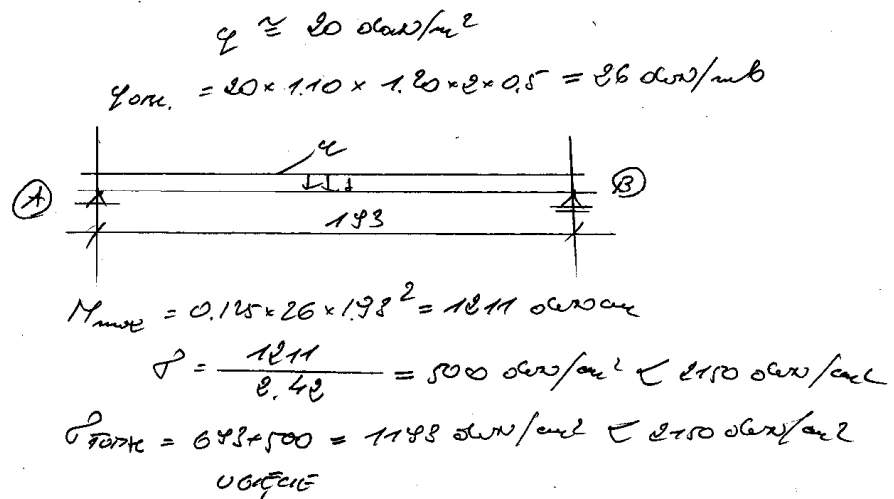 q ≅ 20 daN/m²
qobl. = 20 × 1.10 × 1.20 × 2 × 0.5 = 26 daN/mb
q
A B
193
Mmax = 0.125 × 26 × 1.93² = 1211 daNcm
σ = 1211 / 2.42 = 500 daN/cm² < 2150 daN/cm²
= 693 + 500 = 1193 daN/cm² < 2150 daN/cm²
UGIĘCIE